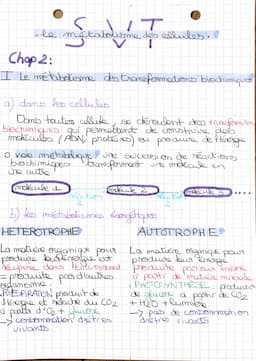 S V T
. le métabolisme des cellules.
Chap 2:
I Le métabolisme des transformations biochimiques
a) dans les cellules
Dans toutes cellule, se déroulent des transformations
biochimiques qui permettent de construire des
molécules (ADN, protéines) ou produire de l'énergie
voie métabolique: une succession de réactions
biochimiques transformant une molécule en
une autre
molécule 1 molécule 2 molécule 3
b) les métabolismes énergétiques
HETEROTROPHE
La matière organique pour
produire
= produite pas d'autres
organisme.
RESPIRATION produit de
l'énergie et rejette du CO2
à partir d'O2 + glucose
→ consommation d'êtres
vivants.
AUTOTROPHE
La matière organique pour
produire leur énergie
produite par eux même
à partir de matière minérale
. PHOTOSYNTHÈSE: production
de glucose à partir de CO2
+ H2O + lumière
→ pas de consommation
d'êtres vivants